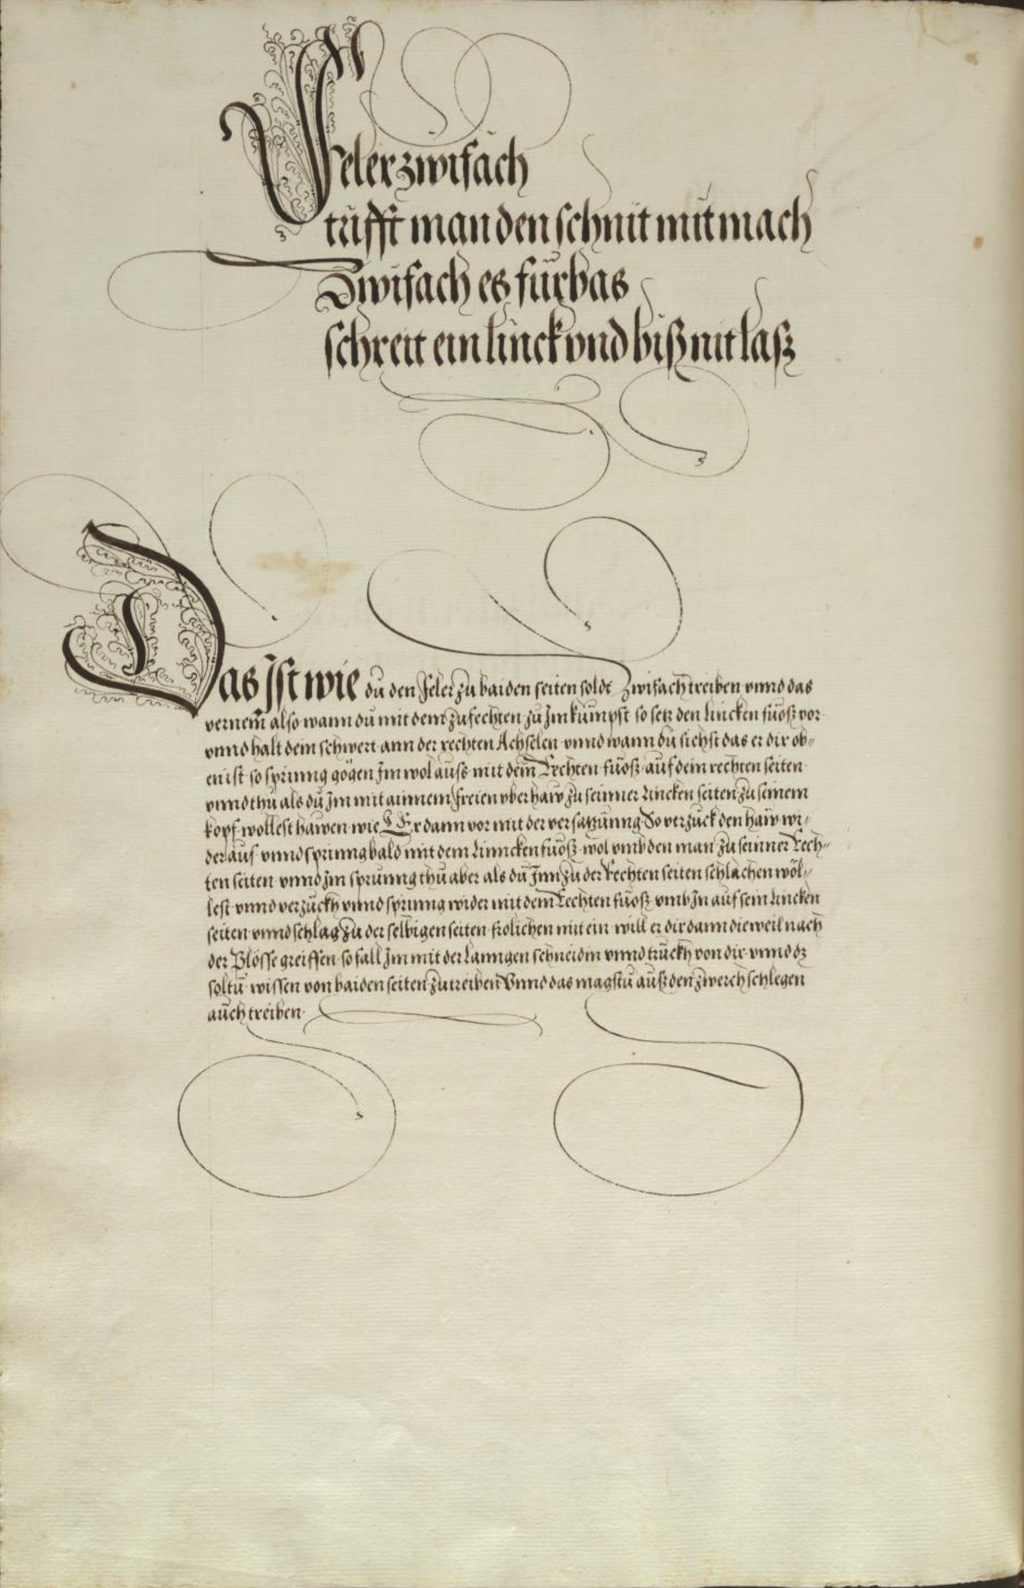 Feler zwifach
trifft man den schnit mit mach
Zwifach es fürbas
schreit ein linck vnd biß nit laſz
Das Jst wie du den Feler zu baiden seiten soldt Zwifach treiben vnnd das
vernem also wann du mit dem Zufechten zu Jm kumpst so setz den lincken fuoß vor
vnnd halt dein schwert ann der rechten Achselen vnnd wann du sichst das er dir ob-
en ist so sprinng gögen Jm wol auss mit dem Rechten fuoß auf dein rechten seiten
vnnd thu als du Jm mit ainnem freien oberhaw zu seinner Lincken seiten zu seinem
kopf wollest hawen wie Er dann vor mit der versatzunng So verzuck den haw wi-
derauf vnnd sprinng bald mit dem Linncken fuoß wol vmb den man zu seinner Rech-
ten seiten vnnd Jm sprunng thu aber als du Jnn zu der Rechten seiten schlachen wöl-
lest vnnd verzuckh vnnd sprinng wider mit dem Rechten fuoß vmb Jn auf sein Lincken
seiten vnnd schlag zu der selbigen seiten frolichen mit ein will er dir dann dieweil nach
der Blösse greiffen so fall Jm mit der Lanngen schneid in vnnd truckh von dir vnnd dz
soltu wissen von baiden seiten zu treiben Vnnd das magstu auß den zwerch schlegen
auch treiben